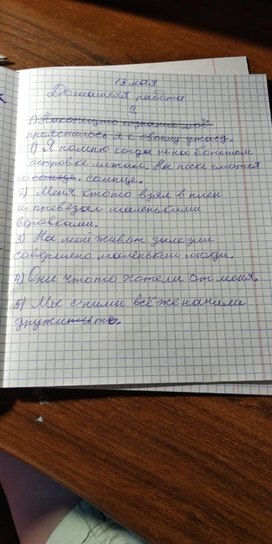 18 мая
Домашняя работа
1) Я помню когда на большом
островке лежал. На песке
солнце. солнце.
2) Меня ктото взял в плен
и превезал маленькими
верёвками.
3) На мой живот залезли
совершено маленькии люди.
4) Они чтото хотели от меня.
5) Мы с ними всё же начили
дружить.